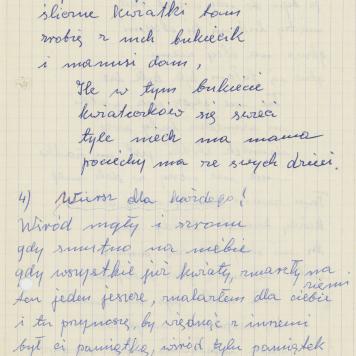 śliczne kwiatki mam
zrobię z nich bukiecik
i mamusi dam,
Ile w tym bukiecie
kwiateczków się świeci
tyle niech ma mama
pociechy ma ze swych dzieci.
4) Wiersz dla każdego!
Wśród mgły i szronu
gdy smutno na niebie
gdy wszystkie już kwiaty, zmarzły na ziemi
ten jeden jeszcze, znalazłem dla ciebie
i tu przynoszę, by więdnąc z innemi
był ci pamiątką, wśród tylu pamiątek